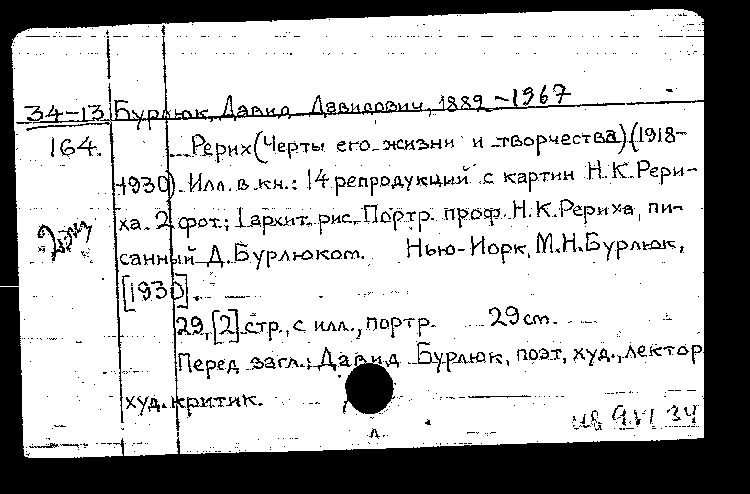 34-13 Бурлюк, Давид Давидович, 1882-1967
164. Рерих (Черты его жизни и творчества) (1918-
-1930). Илл. в кн.: 14 репродукций с картин Н.К.Рери-
ха. 2 фот.; 1 архит. рис. Портр. проф. Н.К.Рериха, пи-
санный Д.Бурлюком. Нью-Иорк, М.Н.Бурлюк,
[1930].
29, [2] стр., с илл., портр. 29 cm.
Перед загл.: Давид Бурлюк, поэт, худ., лектор
худ. критик.
л.